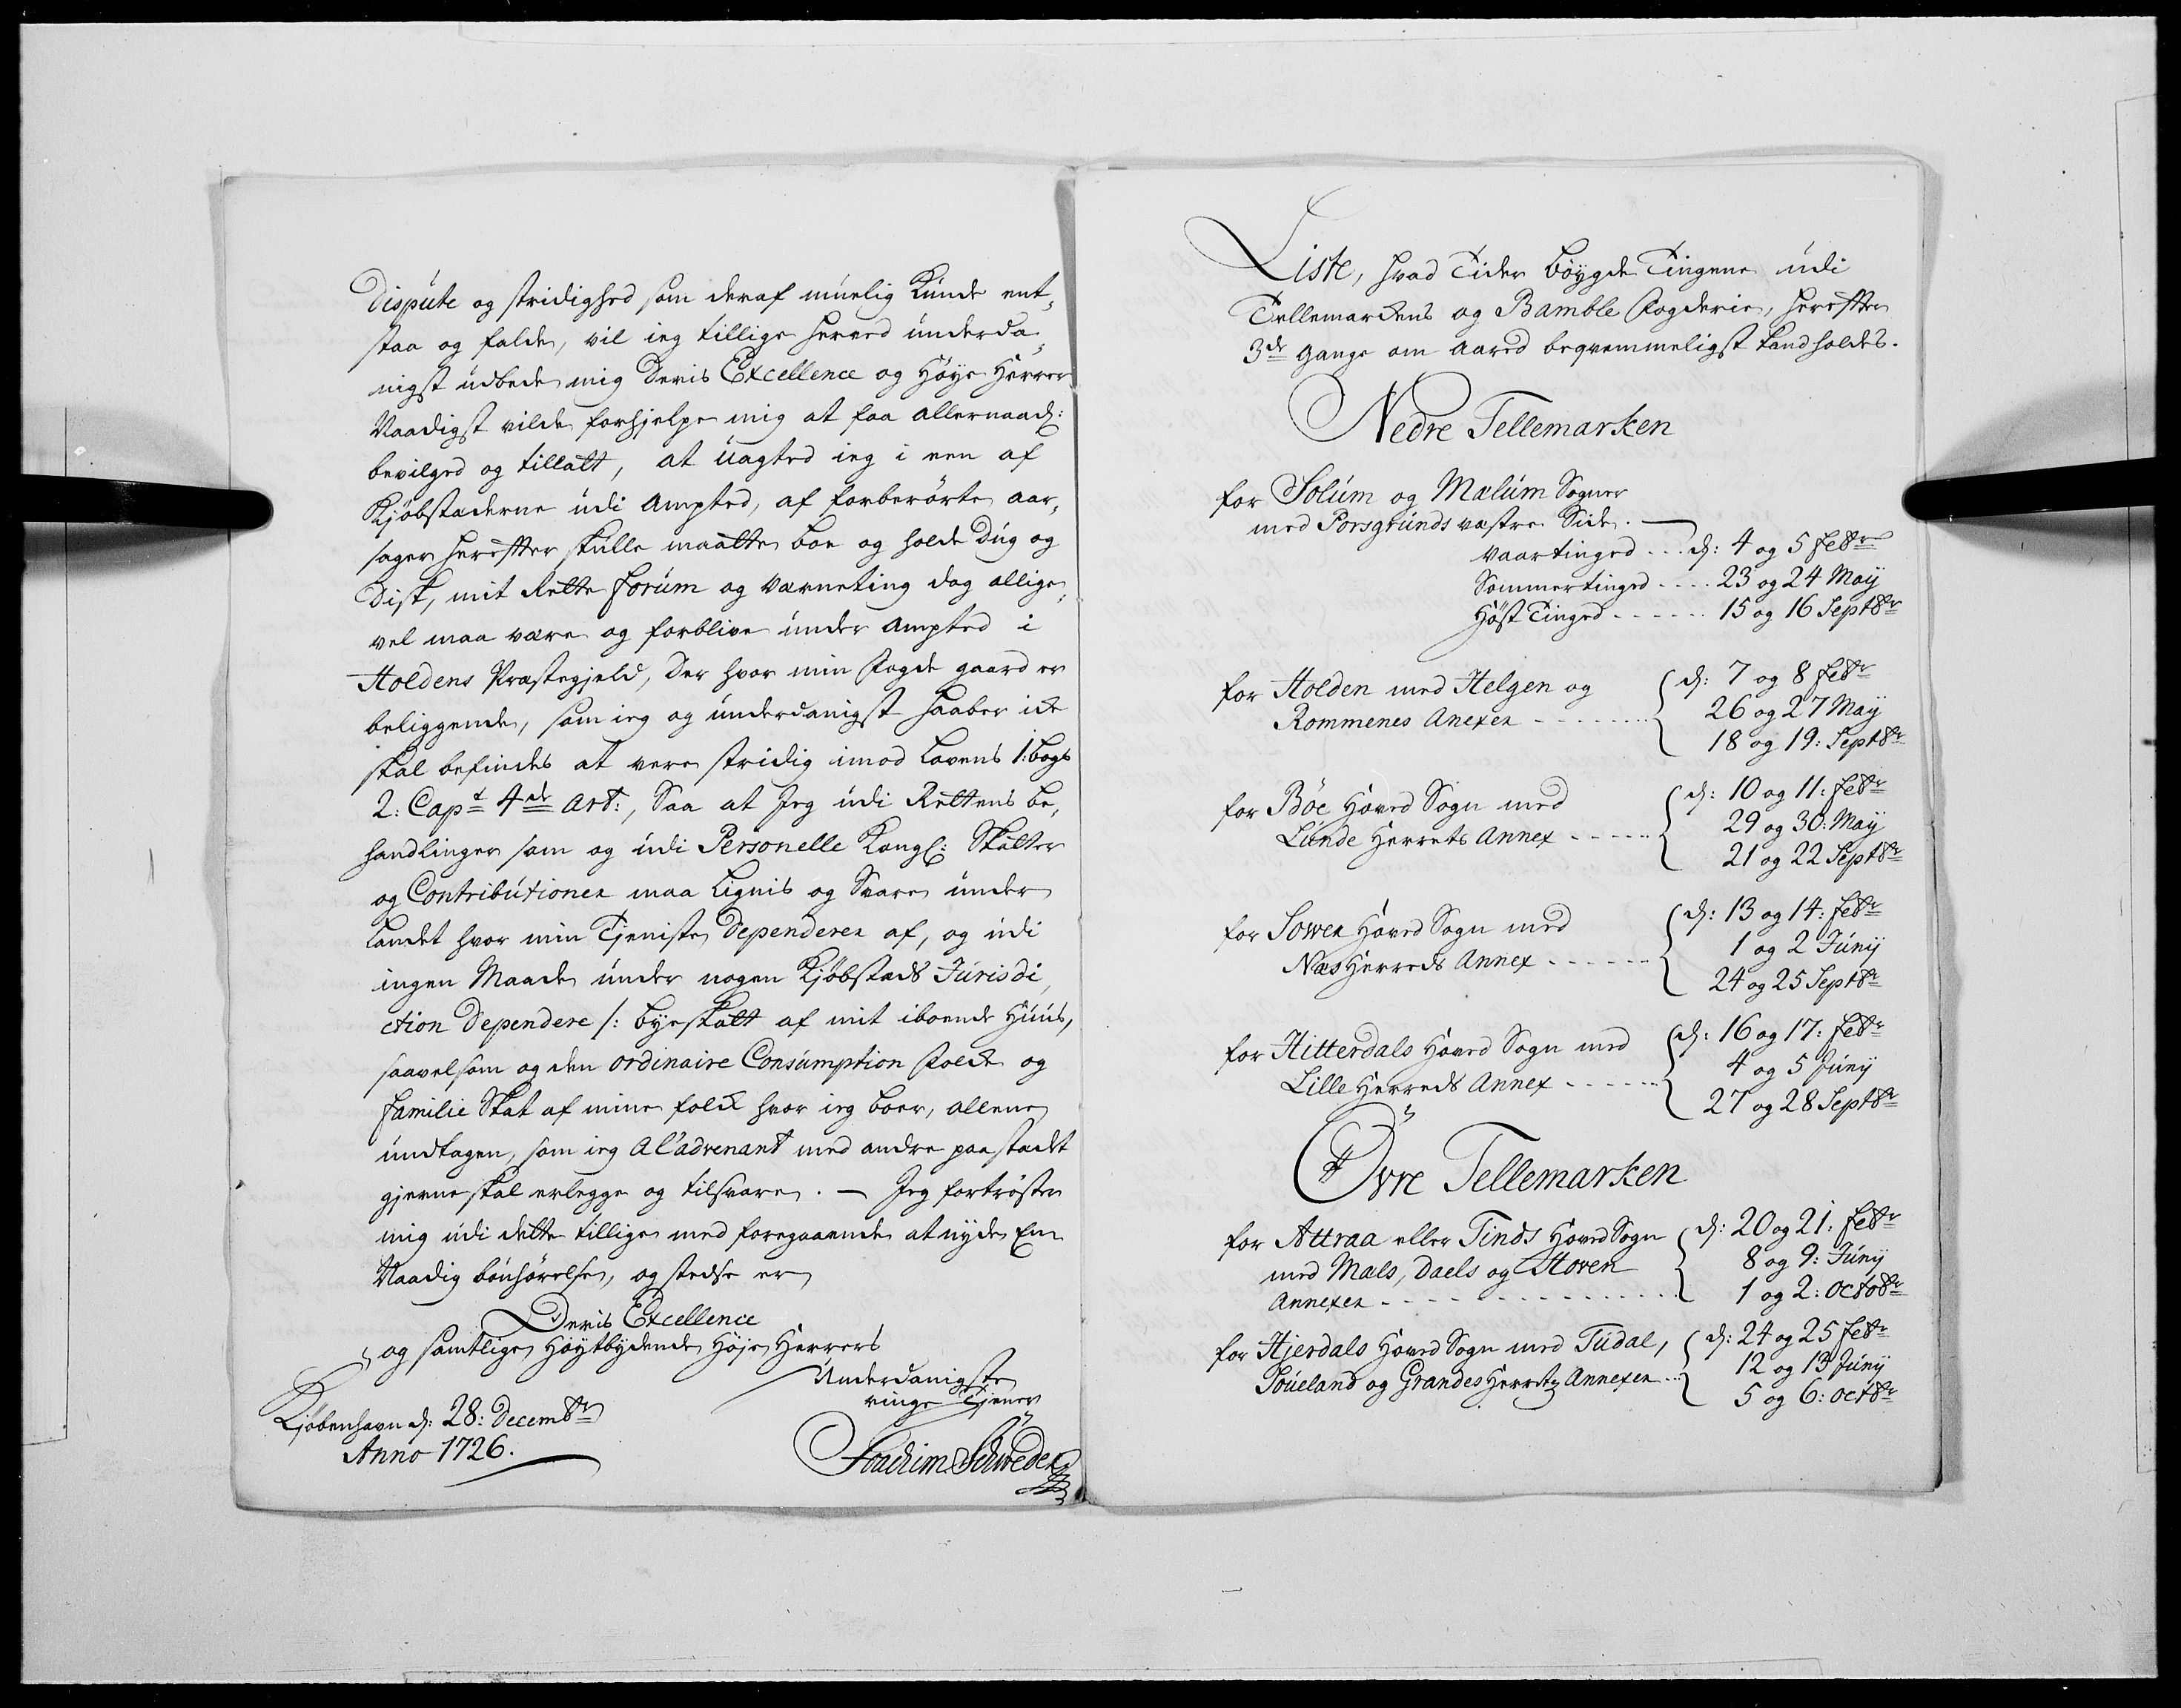 Dispute og stridighed som deraf muelig kunde ent¬
staa og falde, vil ieg tillige herved underda¬
nigst udbede mig Deris Excellence og Høye Herrer
Naadigst vilde forhjelpe mig at faa allernaad:
bevilged og tilladt, at uagted ieg i een af
Kjøbstæderne udi Ampted, af forberørte aar¬
sager herefter skulle maatte boe og holde Dug og
Disk, mit Rette forum og Værneting dog allige¬
vel maa være og forblive under Ampted i
Holdens Præstegjeld, der hvor min Fogde gaard er
beliggende, som ieg og underdanigst haaber ick
skal befindes at være stridig imod Lovens 1: Bogs
2: Capt 4de Art:, Saa at Jeg udi Rettens be¬
handlinger som og udi Personelle Kongl: Skatter
og Contributioner maa Lignis og Svare under
Landet hvor min Tjeniste Dependerer af, og udi
ingen Maade under nogen Kjøbstads Jurisdi¬
ction Dependere /: byeskatt af mit iboende Huus,
saavelsom og den ordinaire Consumption Folck og
Familie Skat af mine folck hvor ieg boer, allene
undtagen, som ieg A l'advenant med andre paa stædet
gjerne skal erlegge og tilsvare. — Jeg fortrøster
mig udi dette tillige med foregaaende at nyde En
Naadig bønhørelse, og stedse er
Deris Excellence
og samtlige Høytbydende Høje Herrers
Underdanigste
ringe Tjener
Kjøbenhavn d: 28: Decembr
Anno 1726.
Joachim Schweder
Liste, hvad Tider Bøygde Tingene udi
Tellemarckens og Bamble Fogderie, herefter
3de gange om Aared beqvemmeligst kand holdes.
Nedre Tellemarken
for Solum og Mælum Sogner
med Porsgrunds væstre Side. —
Vaartinged . . . d: 4 og 5 Febr
Sommertinged . . . . 23 og 24 Maij
Høst Tinged . . . . . . 15 og 16 Septbr
for Holden med Helgen og
Rommenes Anexer . . . . . .
d: 7 og 8 Febr
26 og 27 Maij
18 og 19: Septbr
for Böe Hoved Sogn med
Lunde Herrets Annex . . . . .
d: 10 og 11: Febr
29 og 30: Maij
21 og 22 Septbr
for Sowen Hoved Sogn med
Næs Herreds Annex . . . . . .
d: 13 og 14: Febr
1 og 2 Junij
24 og 25 Septbr
for Hitterdals Hoved Sogn med
Lille Herreds Annex . . . . . .
d: 16 og 17: Febr
4 og 5 Junij
27 og 28 Septbr
Övre Tellemarken
for Attraa eller Tinds Hoved Sogn
med Mæls, Daels og Hoven
Annexer . . . . . . . . . . . . .
d: 20 og 21: Febr
8 og 9: Junij
1 og 2: Octobr
for Hierdals Hoved Sogn med Tudal,
Soueland og Grandes Herretz Annexer . .
d: 24 og 25 Febr
12 og 13 Junij
5 og 6: Octbr